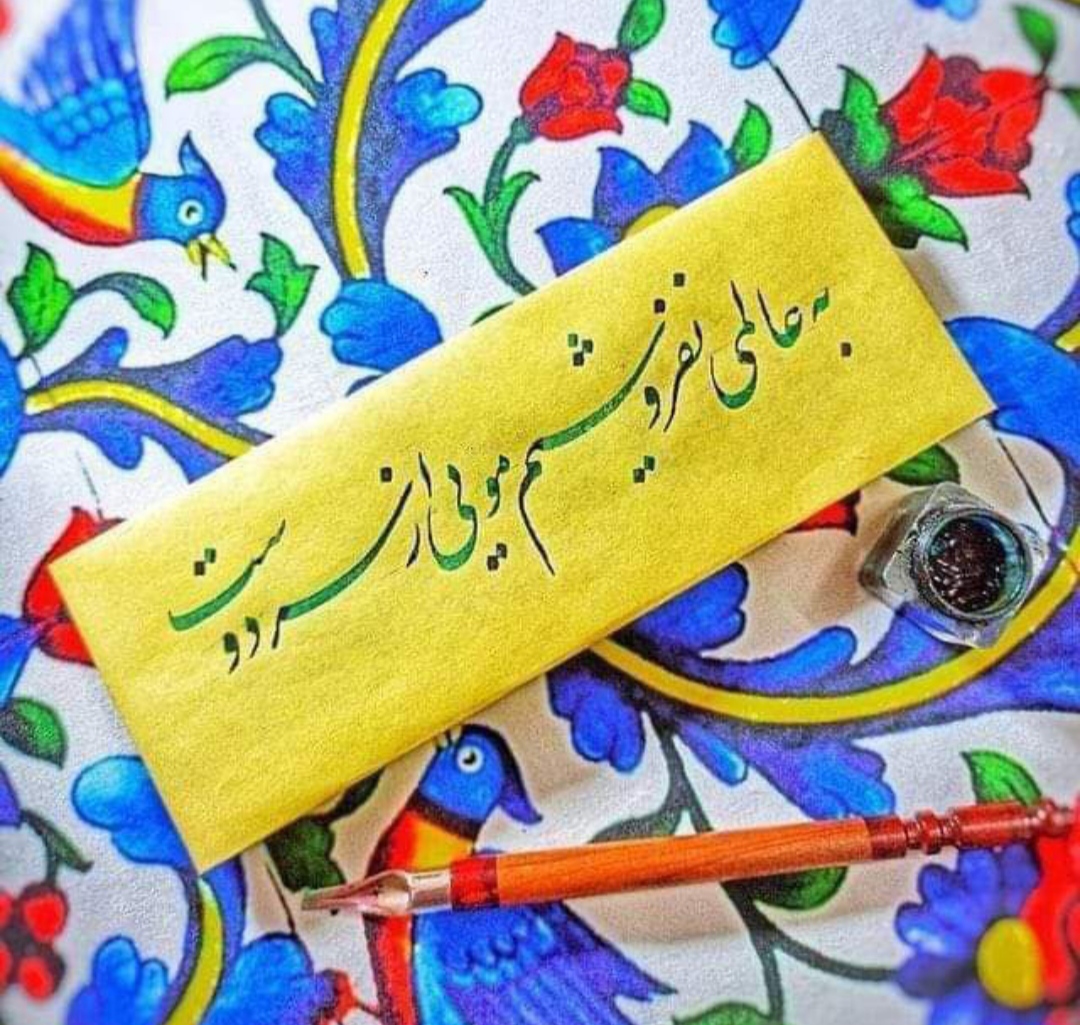 به عالمی نفروشیم مویی از سر دوست